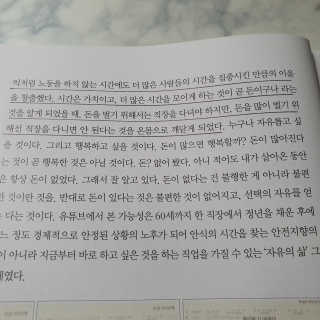 처럼 노동을 하지 않는 시간에도 더 많은 사람들의 시간을 집중시킨 만큼의 이윤
을 창출했다. 시간은 가치이고, 더 많은 시간을 모이게 하는 것이 곧 돈이구나 라는
것을 알게 되었을 때, 돈을 벌기 위해서는 직장을 다녀야 하지만, 돈을 많이 벌기 위
해선 직장을 다니면 안 된다는 것을 온몸으로 깨닫게 되었다. 누구나 자유롭고 싶
을 것이다. 그리고 행복하고 싶을 것이다. 돈이 많으면 행복할까? 돈이 많아진다
는 것이 곧 행복한 것은 아닐 것이다. 돈? 없어 봤다. 아니 적어도 내가 살아온 동안
은 항상 돈이 없었다. 그래서 잘 알고 있다. 돈이 없다는 건 불행한 게 아니라 불편
한 것이란 것을, 반대로 돈이 있다는 것은 불편한 것이 없어지고, 선택의 자유를 얻
는 다는 것이다. 유튜브에서 본 가능성은 60세까지 한 직장에서 정년을 채운 후에
느 정도 경제적으로 안정된 상황의 노후가 되어 안식의 시간을 찾는 안전지향의
이 아니라 지금부터 바로 하고 싶은 것을 하는 직업을 가질 수 있는 '자유의 삶' 그
체였다.